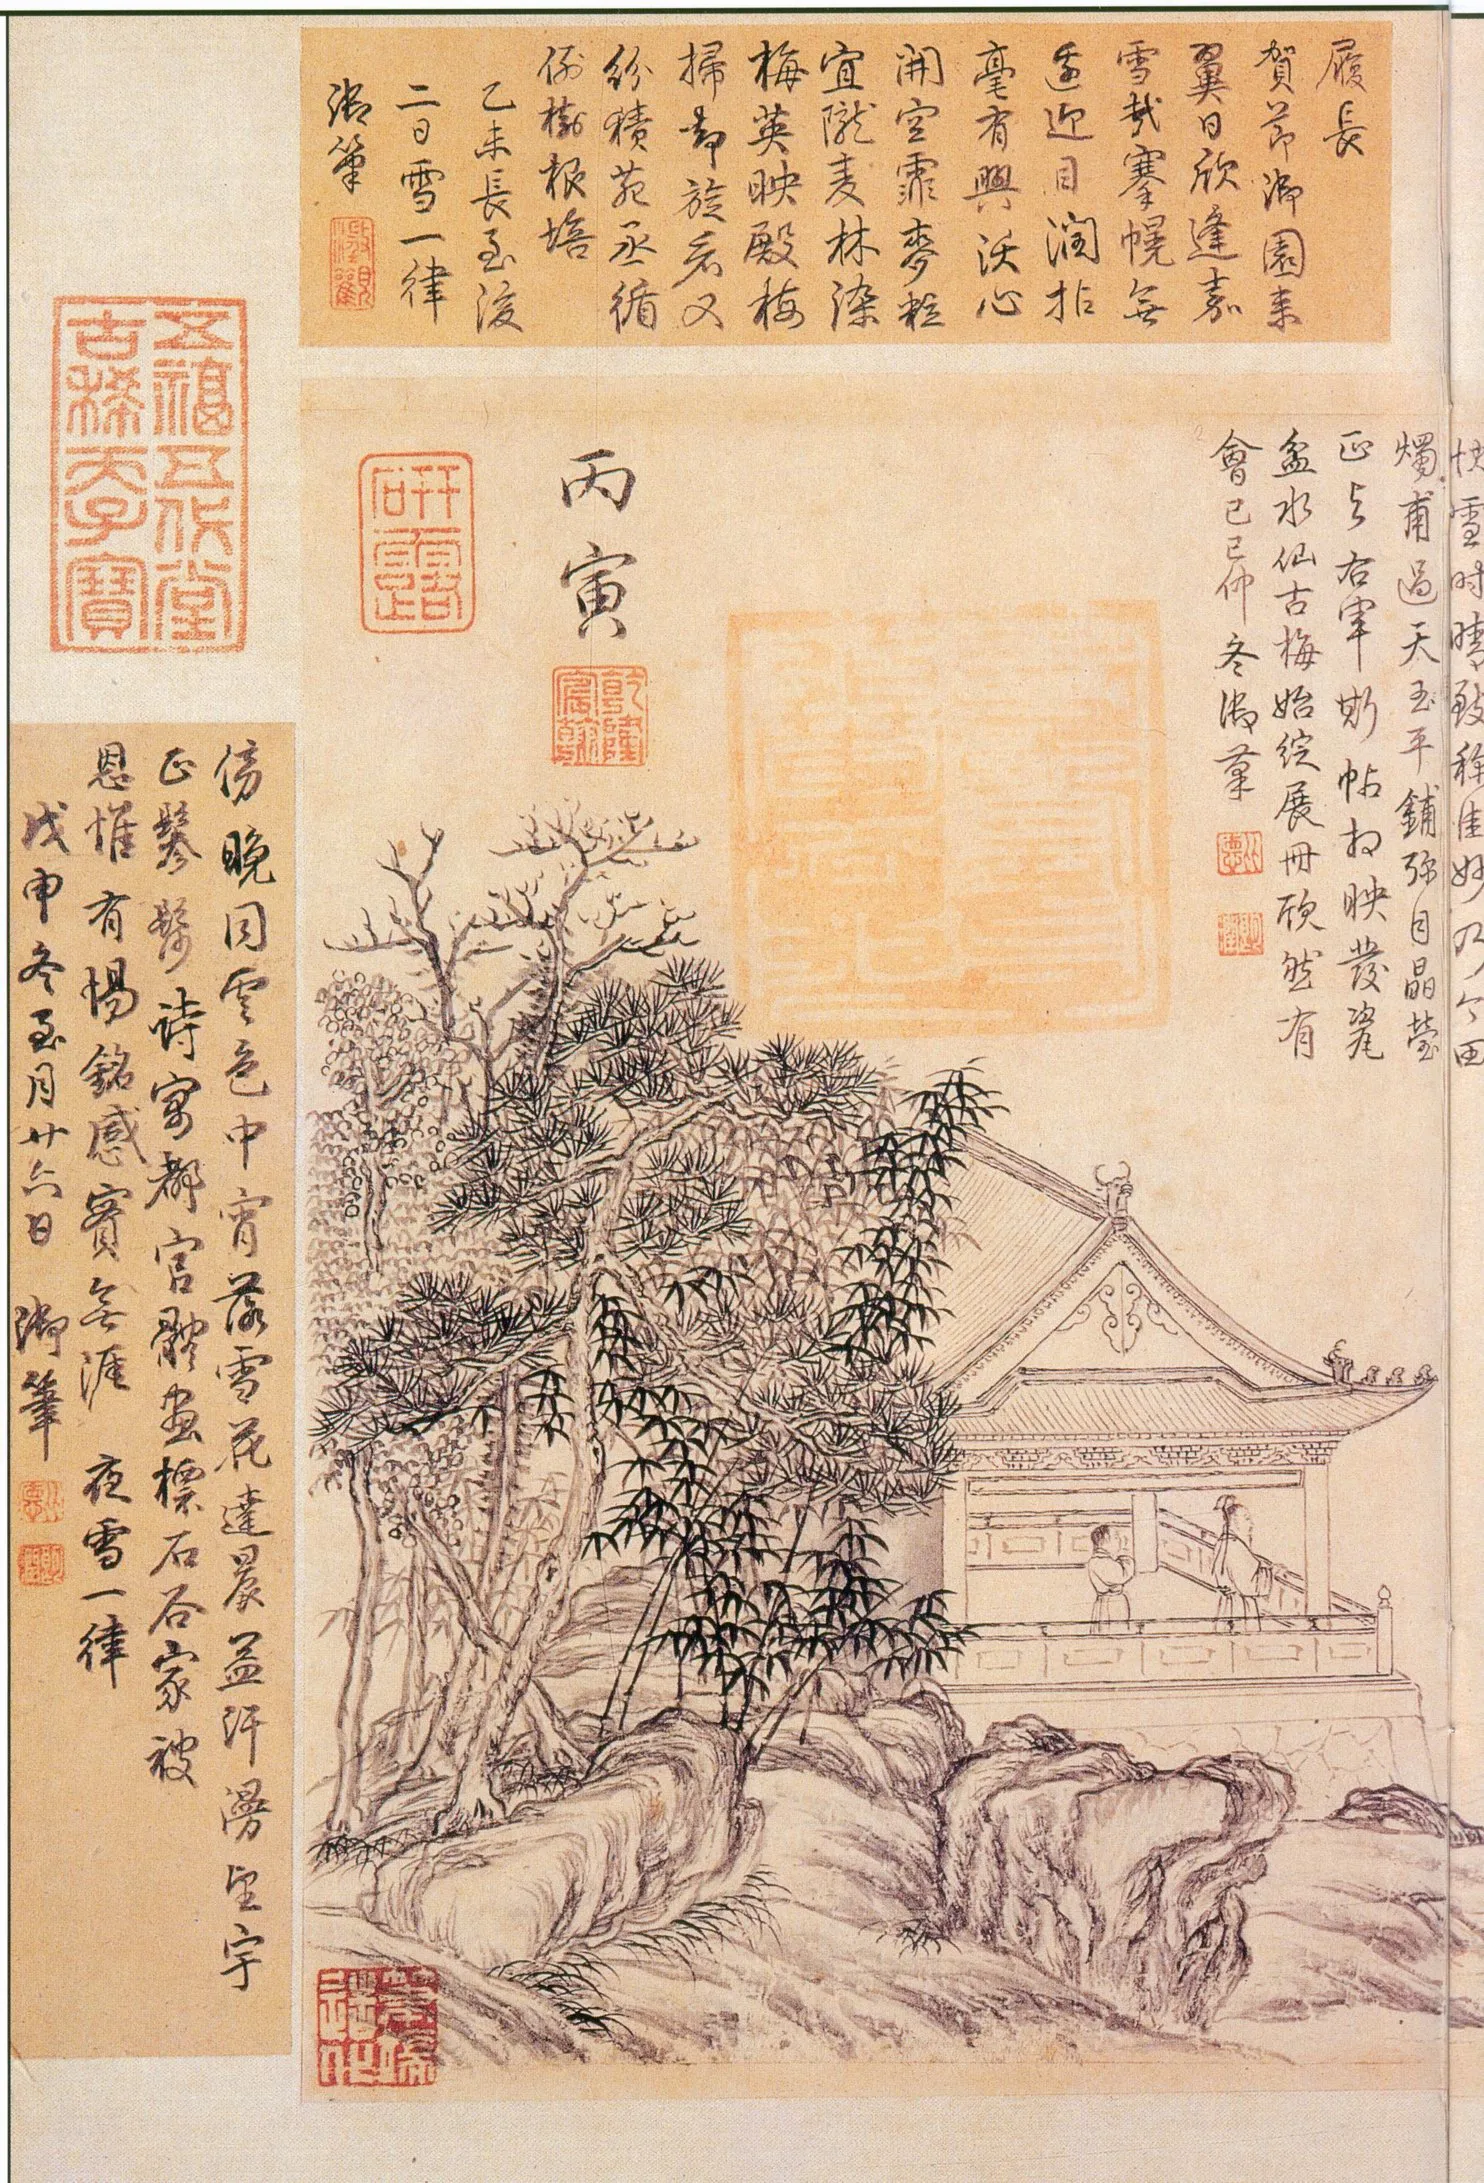 履長
賀節御園來
翼日欣逢嘉
雪哉搴幌無
遙迎目潤拈
毫有興沃心
開空霏麥粒
宜隴麦林染
梅英映殿梅
掃却旋看又
紛積苑丞循
例樹根培
乙未長至後
二日雪一律
御筆
快雪時晴
燭甫過天玉平鋪弥目晶瑩
正与右軍斯帖相映發瓷
盆水仙古梅始綻展冊欣然有
會己巳仲冬御筆
丙寅
乾隆
宸翰
研露
五福五代堂
古稀天子寶
傍晚同雲色中宵落雪花達晨益汗漫望宇
正鬖髿詩寓都官體畫標石谷家被
恩惟有惕銘感實無涯 夜雪一律
戊申冬至月廿六日 御筆